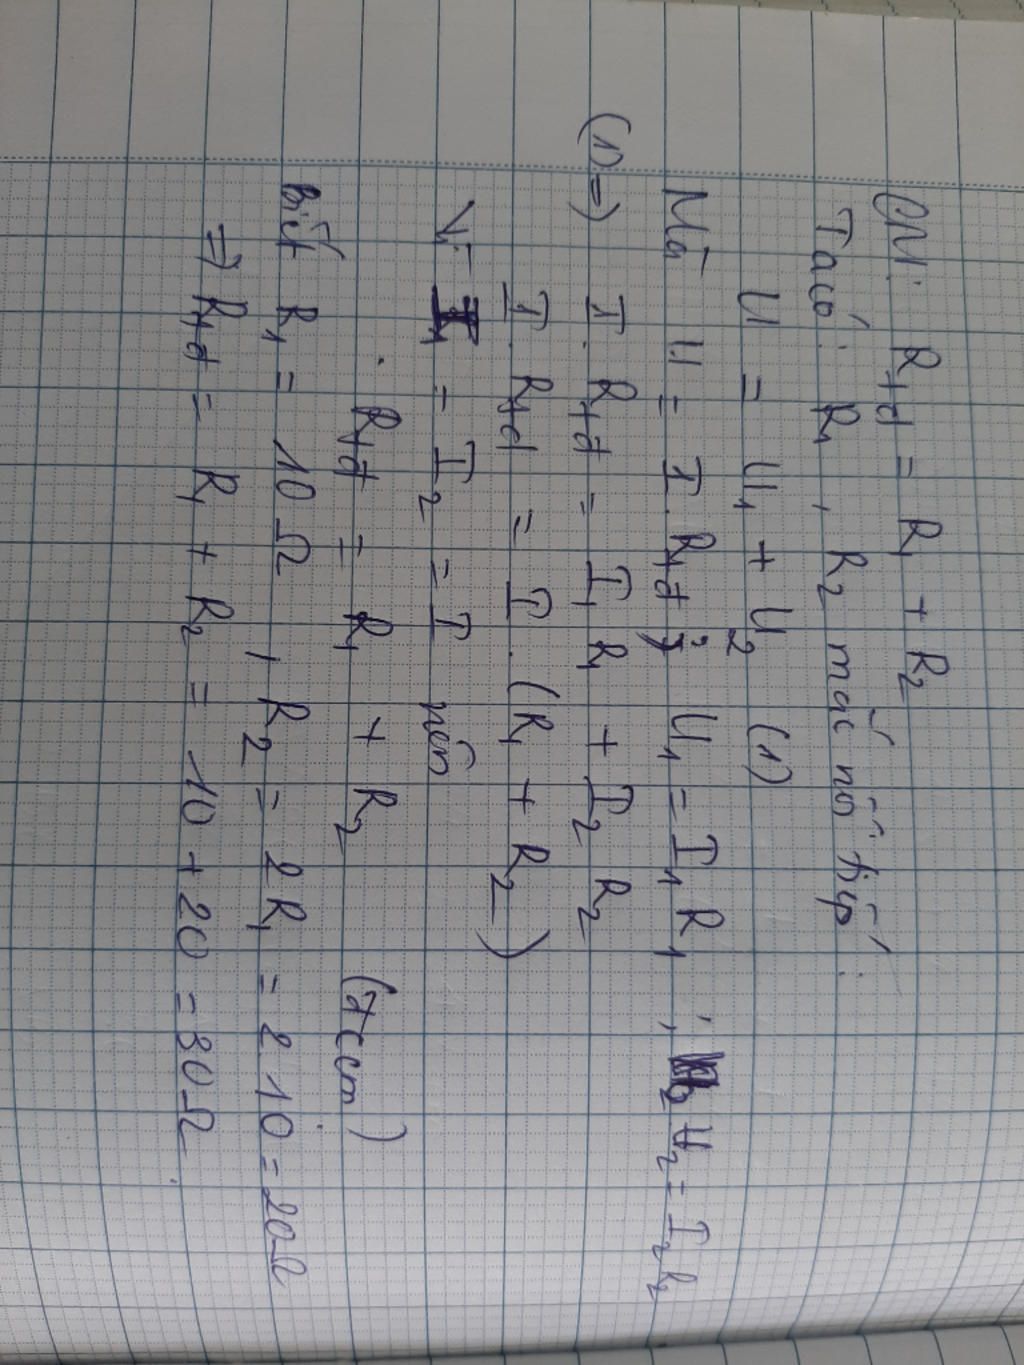 CM: Rtđ = R1 + R2
Ta có: R1, R2 mắc nối tiếp:
U = U1 + U2 (1)
Mà U = I.Rtđ; U1 = I1R1; U2 = I2R2
(1) => I.Rtđ = I1R1 + I2R2
I.Rtđ = I.(R1 + R2)
Vì I1 = I2 = I nên
Rtđ = R1 + R2 (đccm)
biết R1 = 10Ω, R2 = 2R1 = 2.10 = 20Ω
=> Rtđ = R1 + R2 = 10 + 20 = 30Ω.